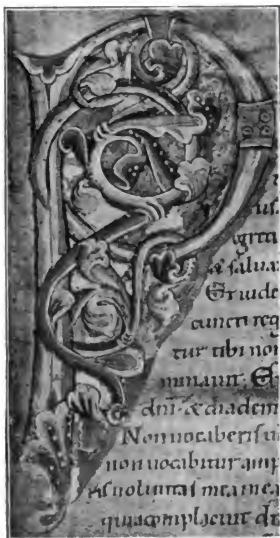 P
us
egredi
& salua
Et uide
cuncti reg
tur tibi nom
minauit. E
dni. & diadem
Non uocaberis u
non uocabitur amp
ris uoluntas mea in ea
quia complacuit d